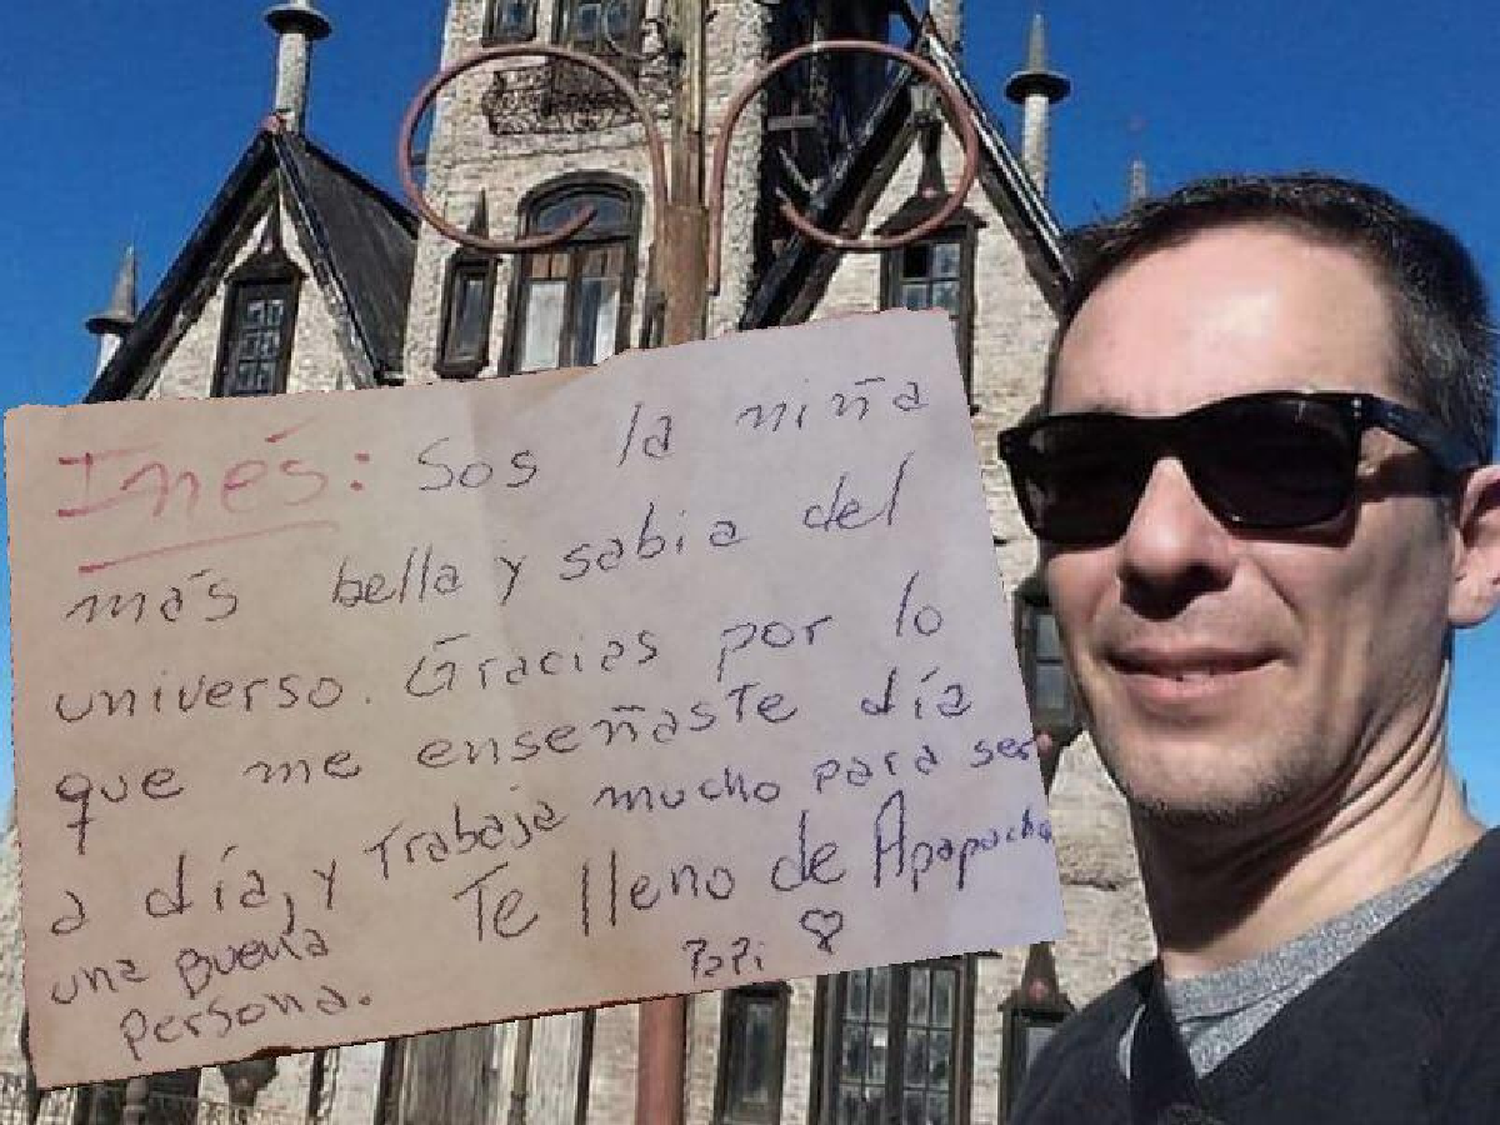 Inés: Sos la niña
más bella y sabia del
universo. Gracias por lo
que me enseñaste día
a día, y Trabaja mucho para ser
una Buena
persona.
Te lleno de Apapacho
PaPi